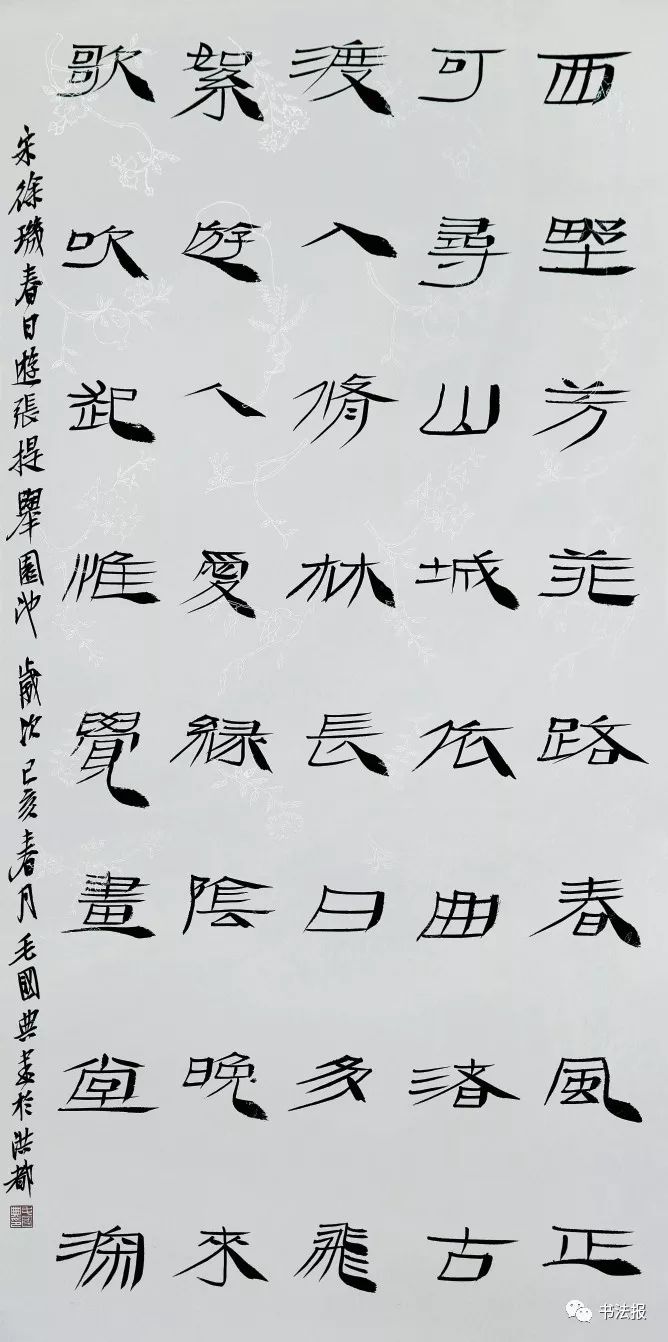 西野芳菲路春風正
可尋山城依曲渚古
渡入脩林長日多飛
絮遊人愛緑陰晚來
歌吹起惟覺畫堂深
宋徐璣春日遊張提舉園池 歲次己亥春月毛國典書於洪都
书法报